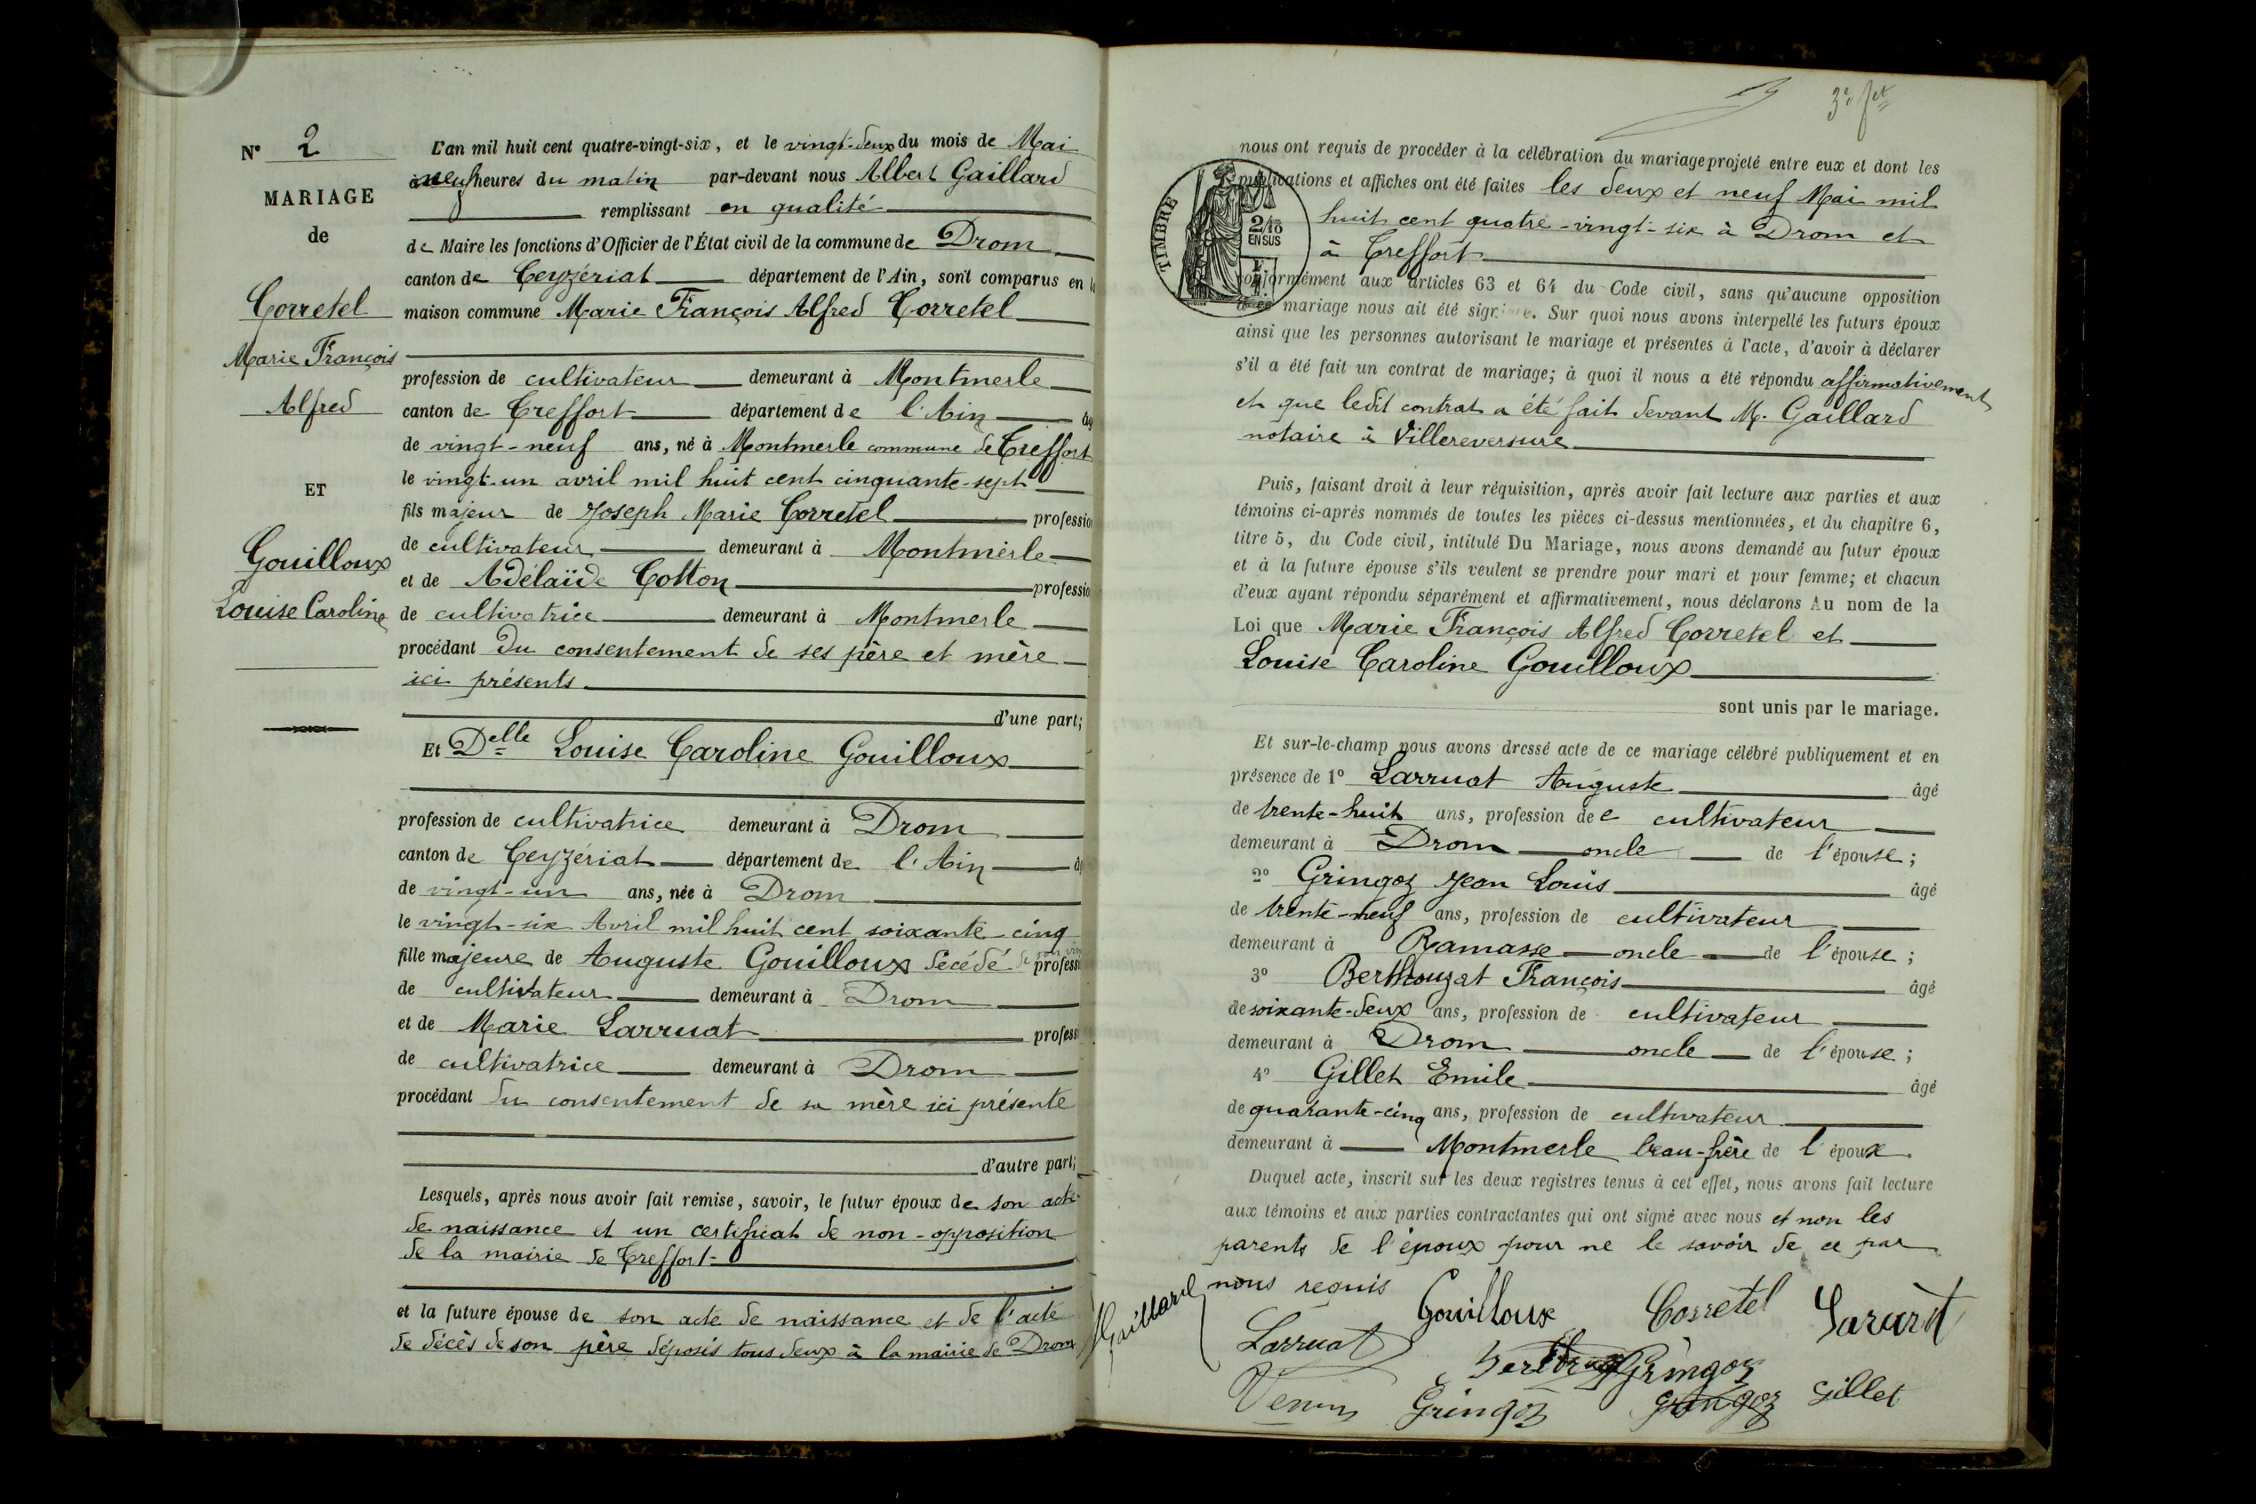 N° 2
MARIAGE
de
Corretel
Marie François
Alfred
ET
Gouilloux
Louise Caroline
L'an mil huit cent quatre-vingt-six, et le vingt-deux du mois de Mai
à neuf heures du matin par-devant nous Albert Gaillard
remplissant en qualité
de Maire les fonctions d'Officier de l'État civil de la commune de Drom
canton de Ceyzériat département de l'Ain, sont comparus en l
maison commune Marie François Alfred Corretel
profession de cultivateur demeurant à Montmerle
canton de Treffort département de l'Ain âg
de vingt-neuf ans, né à Montmerle commune de Treffort
le vingt-un avril mil huit cent cinquante-sept
fils majeur de Joseph Marie Corretel professio
de cultivateur demeurant à Montmerle
et de Adélaïde Cotton professio
de cultivatrice demeurant à Montmerle
procédant du consentement de ses père et mère
ici présents
d'une part;
Et Delle Louise Caroline Gouilloux
profession de cultivatrice demeurant à Drom
canton de Ceyzériat département de l'Ain â
de vingt-un ans, née à Drom
le vingt-six Avril mil huit cent soixante-cinq
fille majeure de Auguste Gouilloux décédé de son vi professi
de cultivateur demeurant à Drom
et de Marie Larruat professi
de cultivatrice demeurant à Drom
procédant du consentement de sa mère ici présente
d'autre part;
Lesquels, après nous avoir fait remise, savoir, le futur époux de son acte
de naissance et un certificat de non-opposition
de la mairie de Treffort
et la future épouse de son acte de naissance et de l'acte
de décès de son père déposés tous deux à la mairie de Drom
3e f et
TIMBRE
2/10
EN SUS
nous ont requis de procéder à la célébration du mariage projeté entre eux et dont les
publications et affiches ont été faites les deux et neuf Mai mil
huit cent quatre-vingt-six à Drom et
à Treffort
conformément aux articles 63 et 64 du Code civil, sans qu'aucune opposition
à ce mariage nous ait été signifiée. Sur quoi nous avons interpellé les futurs époux
ainsi que les personnes autorisant le mariage et présentes à l'acte, d'avoir à déclarer
s'il a été fait un contrat de mariage; à quoi il nous a été répondu affirmativement
et que ledit contrat a été fait devant M. Gaillard
notaire à Villereversure
Puis, faisant droit à leur réquisition, après avoir fait lecture aux parties et aux
témoins ci-après nommés de toutes les pièces ci-dessus mentionnées, et du chapitre 6,
titre 5, du Code civil, intitulé Du Mariage, nous avons demandé au futur époux
et à la future épouse s'ils veulent se prendre pour mari et pour femme; et chacun
d'eux ayant répondu séparément et affirmativement, nous déclarons Au nom de la
Loi que Marie François Alfred Corretel et
Louise Caroline Gouilloux
sont unis par le mariage.
Et sur-le-champ nous avons dressé acte de ce mariage célébré publiquement et en
présence de 1° Larruat Auguste âgé
de trente-huit ans, profession de e cultivateur
demeurant à Drom oncle de l'épouse;
2° Gringoz Jean Louis âgé
de trente-neuf ans, profession de cultivateur
demeurant à Ramasse oncle de l'épouse;
3° Berthouzat François âgé
de soixante-deux ans, profession de cultivateur
demeurant à Drom oncle de l'épouse;
4° Gillet Emile âgé
de quarante-cinq ans, profession de cultivateur
demeurant à Montmerle beau-frère de l'époux.
Duquel acte, inscrit sur les deux registres tenus à cet effet, nous avons fait lecture
aux témoins et aux parties contractantes qui ont signé avec nous et non les
parents de l'époux pour ne le savoir de ce par
nous requis
Gaillard Gouilloux Corretel
Larruat Gringoz
Gringoz Gringoz Gillet